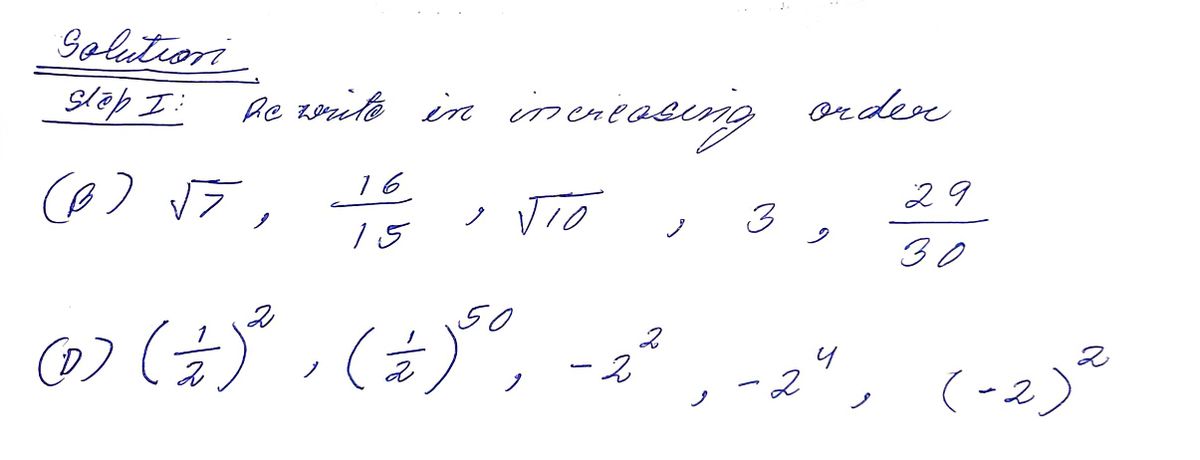 Solution
Step I: Rewrite in increasing order
(B) √7, 16/15, √10, 3, 29/30
(D) (1/2)^2, (1/2)^50, -2^2, -2^4, (-2)^2